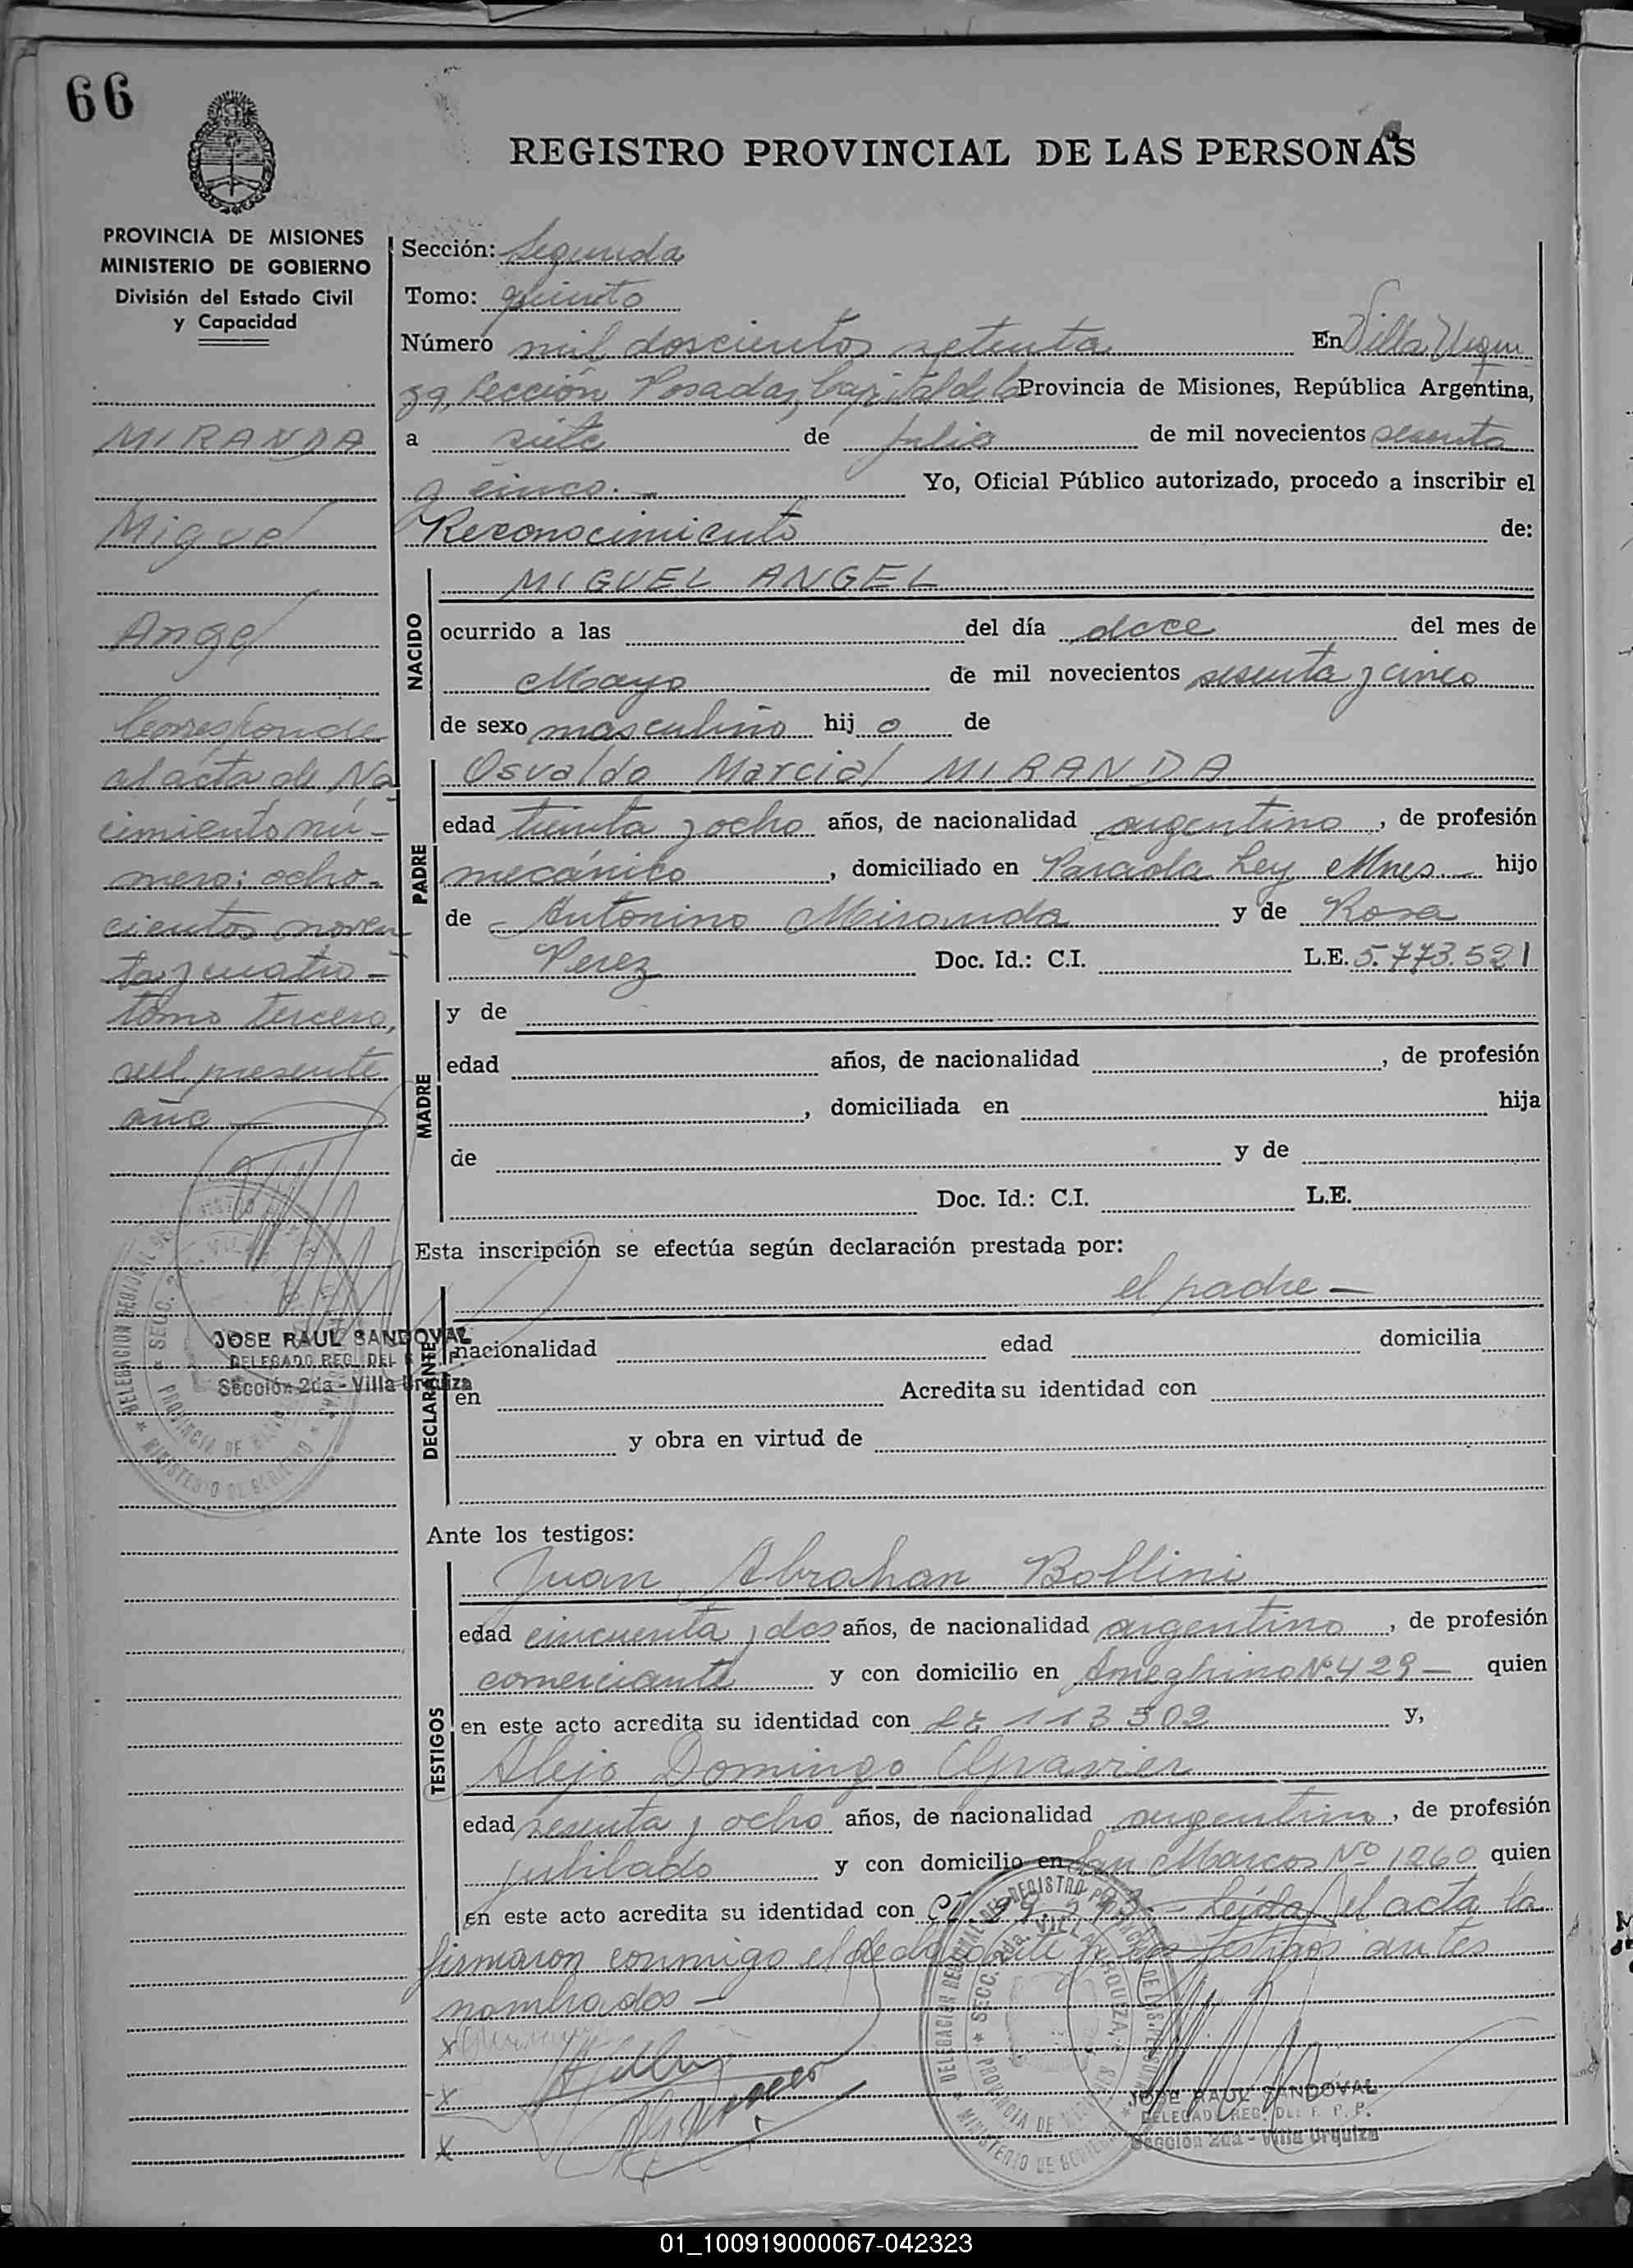 66
REGISTRO PROVINCIAL DE LAS PERSONAS
PROVINCIA DE MISIONES
MINISTERIO DE GOBIERNO
División del Estado Civil
y Capacidad
MIRANDA
Miguel
Angel
Corresponde
al acta de Na-
cimiento nú-
mero: ocho-
cientos noven
ta y cuatro -
tomo tercero,
del presente
año
JOSE RAUL SANDOVAL
DELEGADO REG. DEL R. P. P.
Sección 2da - Villa Urquiza
Sección: Segunda
Tomo: quinto
Número mil doscientos setenta En Villa Urqui
za, Sección Posadas, Capital de la Provincia de Misiones, República Argentina,
a siete de Julio de mil novecientos sesenta
y cinco.- Yo, Oficial Público autorizado, procedo a inscribir el
Reconocimiento de:
NACIDO
MIGUEL ANGEL
ocurrido a las del día doce del mes de
Mayo de mil novecientos sesenta y cinco
de sexo masculino hij o de
PADRE
Osvaldo Marcial MIRANDA
edad treinta y ocho años, de nacionalidad argentino, de profesión
mecánico, domiciliado en Ley Mnes hijo
de Antonino Miranda y de Rosa
Perez Doc. Id.: C.I. L.E. 5.773.521
MADRE
y de
edad años, de nacionalidad , de profesión
, domiciliada en hija
de y de
Doc. Id.: C.I. L.E.
Esta inscripción se efectúa según declaración prestada por:
DECLARANTE
el padre —
nacionalidad edad domicilia
en Acredita su identidad con
y obra en virtud de
Ante los testigos:
TESTIGOS
Juan Abrahan Bollini
edad cincuenta y dos años, de nacionalidad argentino, de profesión
comerciante y con domicilio en Ameghino Nº 429 — quien
en este acto acredita su identidad con 113502 y,
Alejo Domingo
edad sesenta y ocho años, de nacionalidad argentino, de profesión
jubilado y con domicilio en San Marcos Nº 1260 quien
en este acto acredita su identidad con CI Leída el acta la
firmaron conmigo el declarante y los testigos antes
nombrados —
JOSE RAUL SANDOVAL
DELEGADO REG. DEL R. P. P.
Sección 2da - Villa Urquiza
01_100919000067-042323